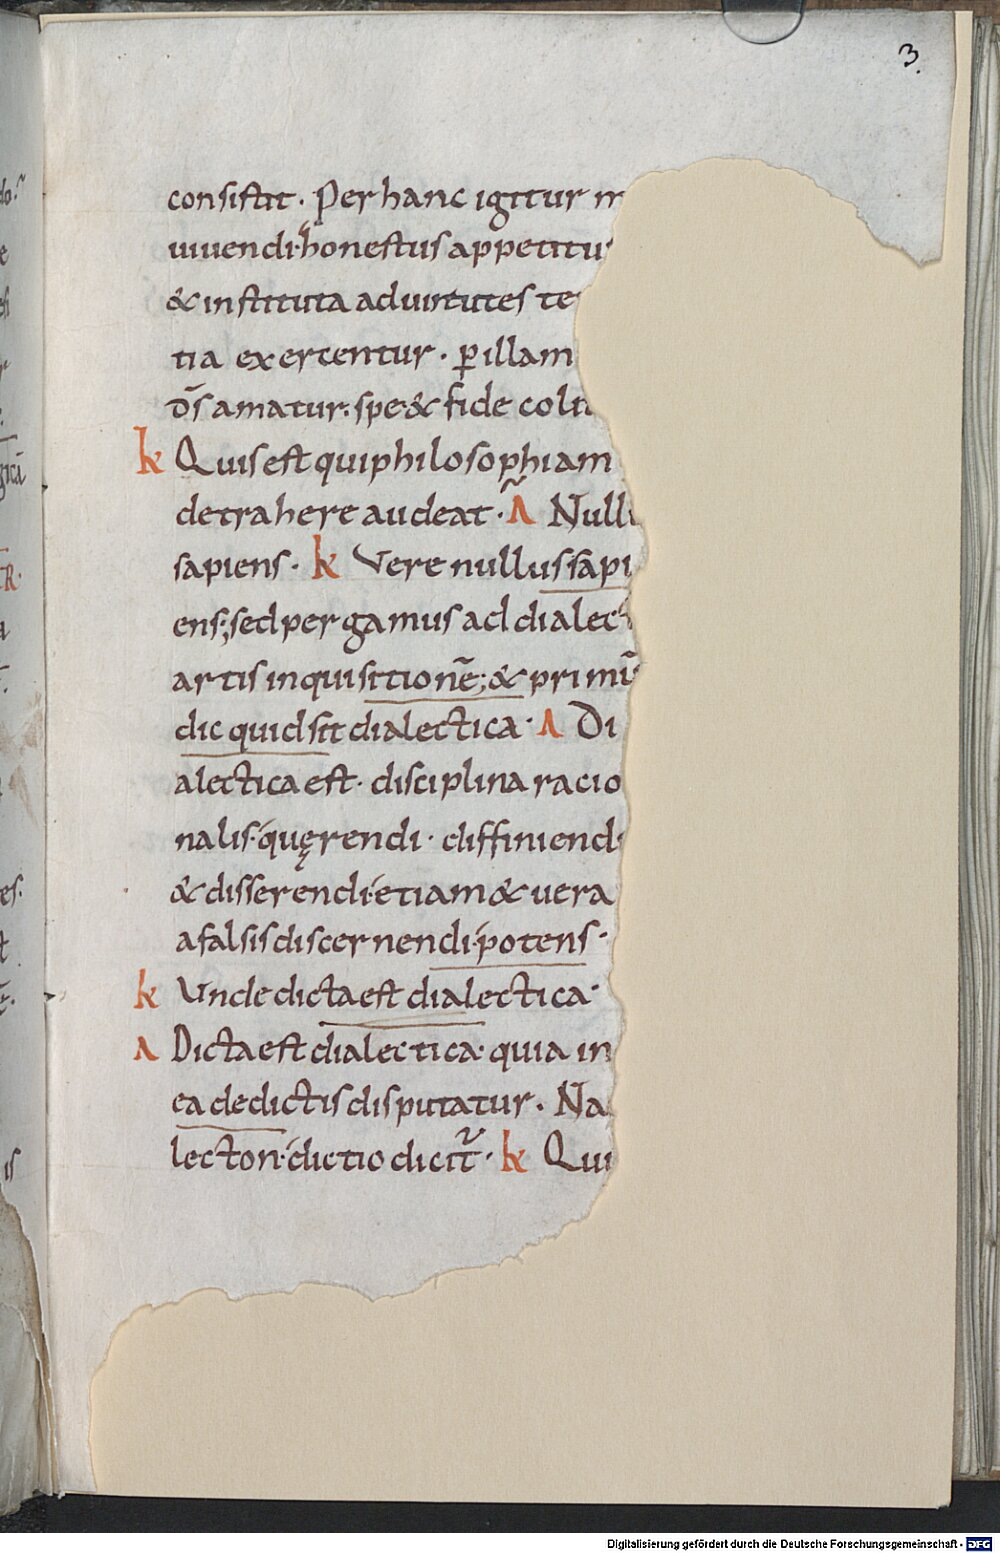 3.
consistit. Per hanc igitur m
uiuendi honestus appetitus
& instituta ad uirtutes te
tia exercentur. ꝑ illam
d̄s amatur. spe & fide coli
k Quis est qui philosophiam
detrahere audeat. Λ̃ Null
sapiens. k Vere nullus sapi
ens; sed pergamus ad dialec
artis inquisitionē; & primū
dic quid sit dialectica. Λ Di
alectica est. disciplina racio
nalis. quęrendi. diffiniendi
& disserendi. etiam & uera
a falsis discernendi. potens.
k Unde dicta est dialectica.
Λ Dicta est dialectica. quia in
ea de dictis disputatur. Na
lecton. dictio dicit̃. k Qui
Digitalisierung gefördert durch die Deutsche Forschungsgemeinschaft - DFG